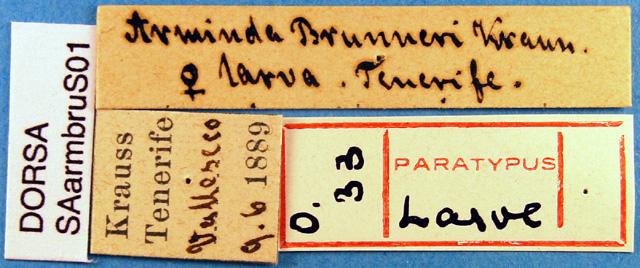 Arminda Brunneri Krauss.
♀ larva. Tenerife.
DORSA
SAarmbruS01
Krauss
Tenerife
Valleseco
9.6 1889
O.
33
PARATYPUS
Larve